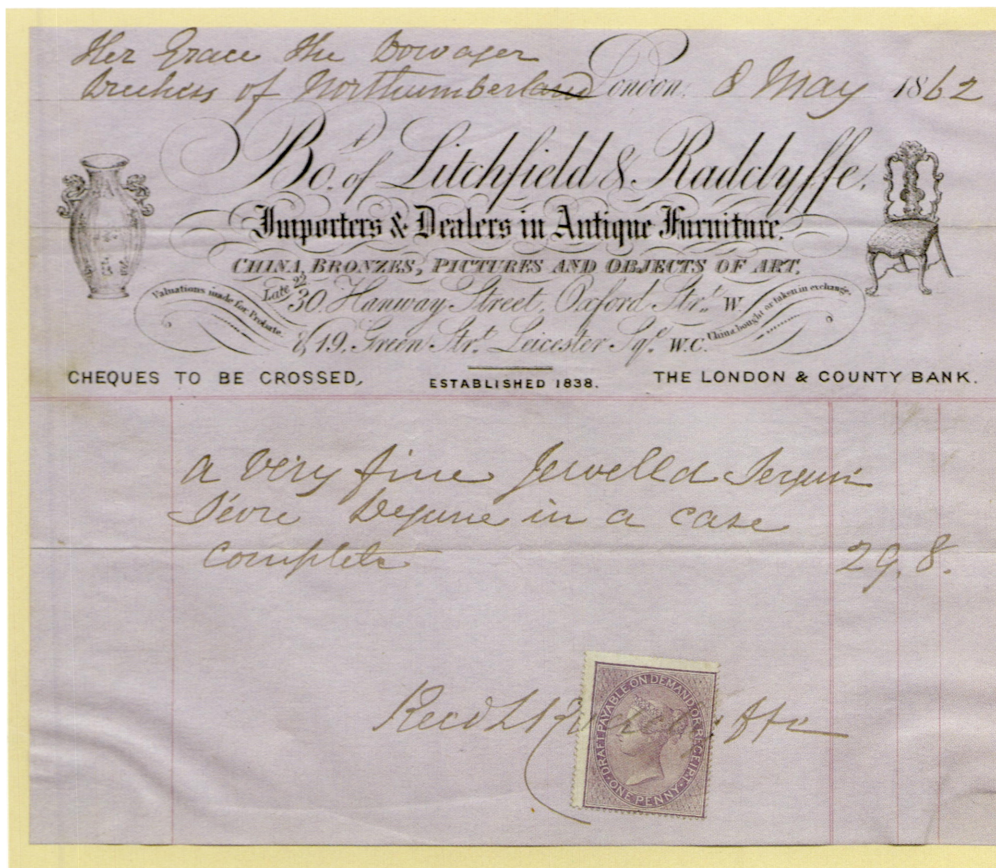 Her Grace the Dowager
Duchess of Northumberland London. 8 May 1862
Bo.t of Litchfield & Radclyffe.
Importers & Dealers in Antique Furniture.
CHINA, BRONZES, PICTURES AND OBJECTS OF ART.
Valuations made for Probate.
Late 22
30. Hanway Street, Oxford Str.t W.
China bought or taken in exchange
& 19. Green Str.t Leicester Sq.e W.C.
CHEQUES TO BE CROSSED, ESTABLISHED 1838. THE LONDON & COUNTY BANK.
a very fine Jewelld
Sévre Dejune in a case
complete 29. 8.
Recd
DRAFT PAYABLE ON DEMAND OR RECEIPT
ONE PENNY